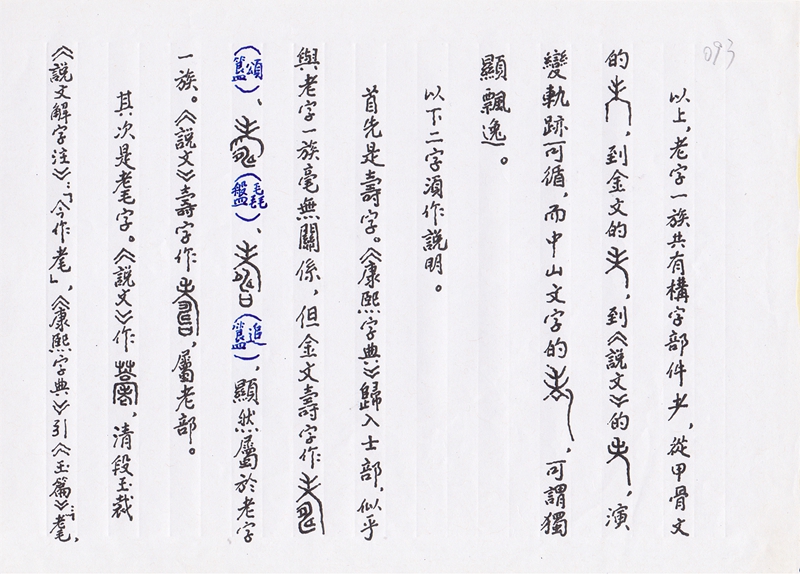 093
以上,老字一族共有構字部件耂,從甲骨文
的,到金文的,到《說文》的,演
變軌跡可循,而中山文字的,可謂獨
顯飄逸。
以下二字須作說明。
首先是壽字。《康熙字典》歸入士部,似乎
與老字一族毫無關係,但金文壽字作
(頌簋)、(毳盤)、(追簋),顯然屬於老字
一族。《說文》壽字作,屬老部。
其次是耄字。《說文》作,清段玉裁
《說文解字注》:「今作耄」,《康熙字典》引《玉篇》:「耄,